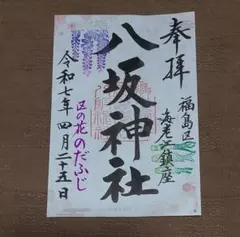 奉拝
福島区
海老江鎮座
八坂神社
区の花のだふじ
令和七年四月二十五日